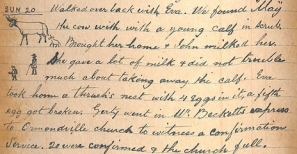 SUN 20 Walked over back with Eva. We found May
the cow with with a young calf in scrub
and Brought her home & John milked her.
She gave a lot of milk & did not trouble
much about taking away the calf. Eva
took home a thrush's nest with 4 eggs in it, a fifth
egg got broken. Gerty went in Mr Becketts express
to Ormondville church to witness a confirmation
Service. 20 were confirmed & the church full.